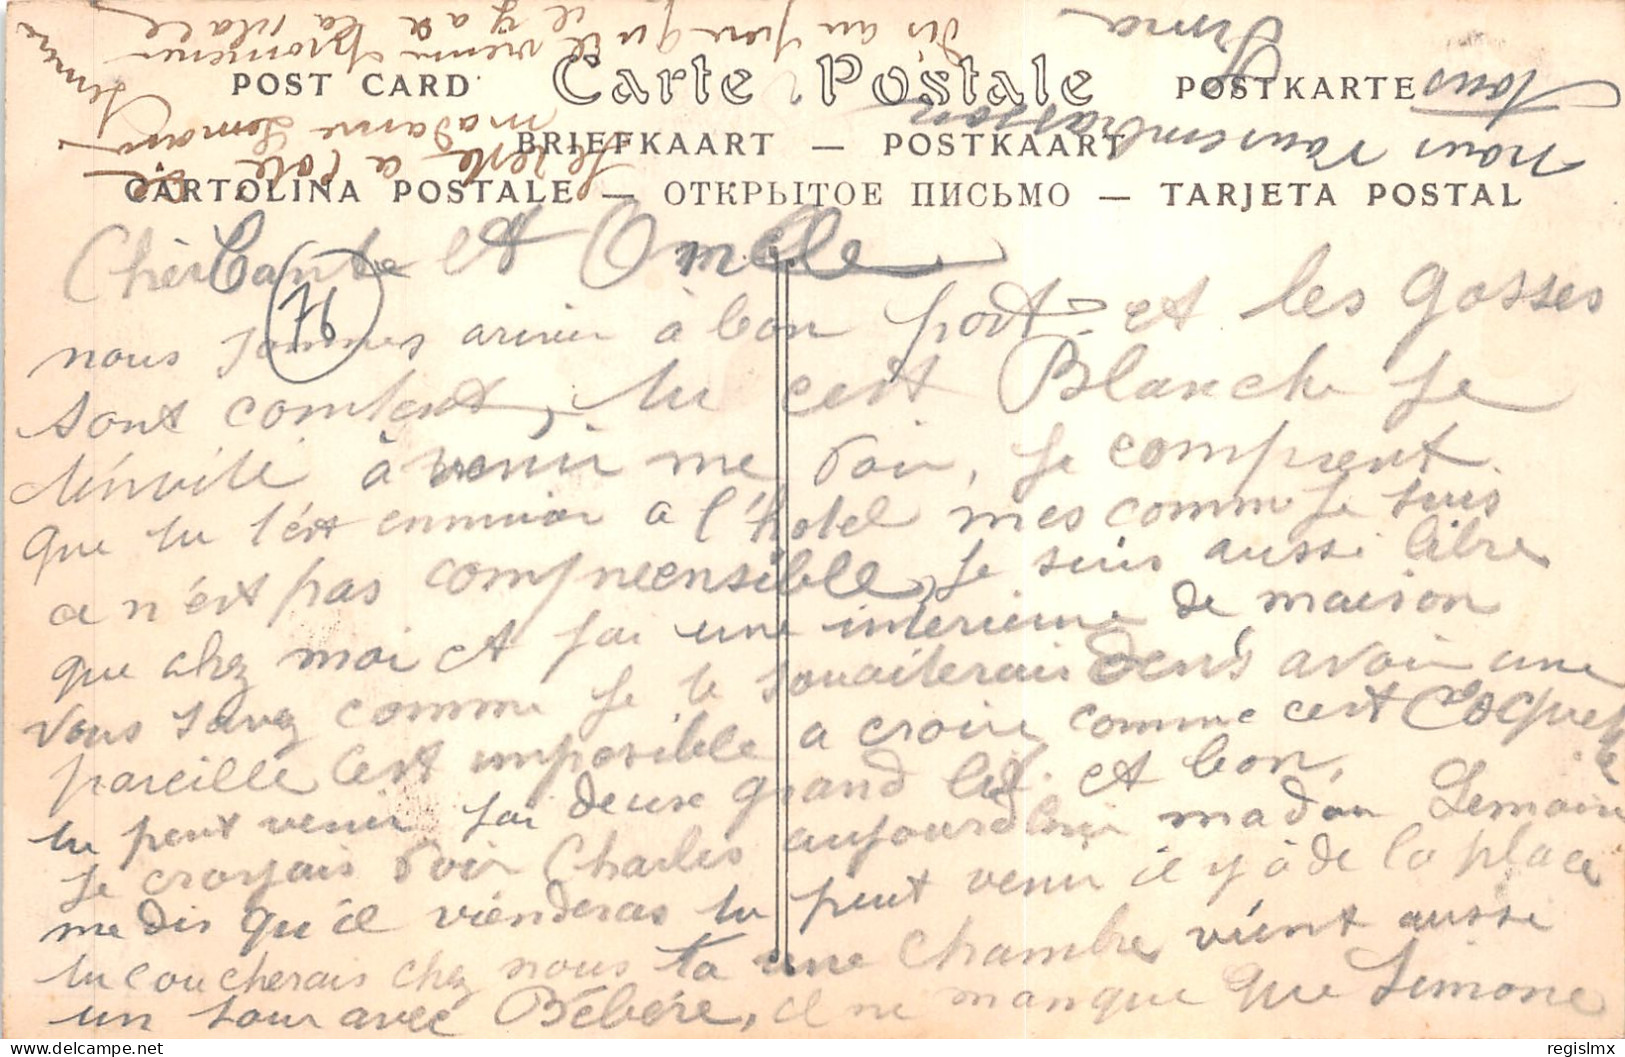 dis au père qu'il
il vienne promener
il y a de la place
POST CARD Carte Postale POSTKARTE
BRIEFKAART — POSTKAART
CARTOLINA POSTALE — ОТКРЫТОЕ ПИСЬМО — TARJETA POSTAL
Je reste a Cote de
madame
nous vous embrasson
Tous
Irma
Chèr Tante et Oncle
97
nous sommes arivér à bon port = et les gosses
sont contents, tu cest Blanche je
t'invite à venir me voir, je comprent
que tu t'ést ennuier a l'hotel mes comme je suis
ce n'ést pas compreensible, je suis aussi libre
que chez moi et jai une interieure de maison
vous savez comme je le souaiterais dens avoir une
pareille cest imposible a croire comme cest Coquet
tu peut venir jai deux grand lit et bon,
je croyais voir Charles aujourdhui madam Lemaire
me dis qu'il vienderas tu peut venir il y à de la place
tu coucherais chez nous ta une chambre vient aussi
un jour avec Bébére, il ne manque que Simone
regislmx